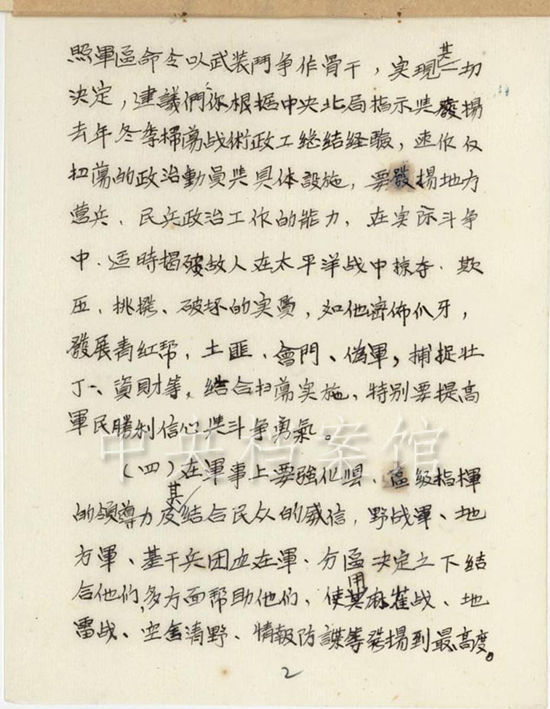 照軍區命令以武装鬥争作骨干，实現其一切
决定，建議們你根据中央北局指示与發揚
去年冬季掃蕩战術政工总结经驗，速作反
扫蕩的政治動員與具体設施，要發揚地方
营兵、民兵政治工作的能力，在实际斗争
中·适時揭破敌人在太平洋战中掠夺、欺
压、挑撥、破坏的实質，如他密佈爪牙，
發展青红帮、土匪、會門、偽軍，捕捉壮
丁、資財等，结合扫蕩实施，特别要提高
軍民勝利信心與斗争勇氣。
（四）在軍事上要強化縣、區級指揮
的领導力及其结合民众的威信，野战軍、地
方軍、基干兵团应在軍、分區决定之下结
合他们多方面帮助他们、使用其麻雀战、地
雷战、空舍清野、情報防諜等發揚到最高度。
2
中央档案馆